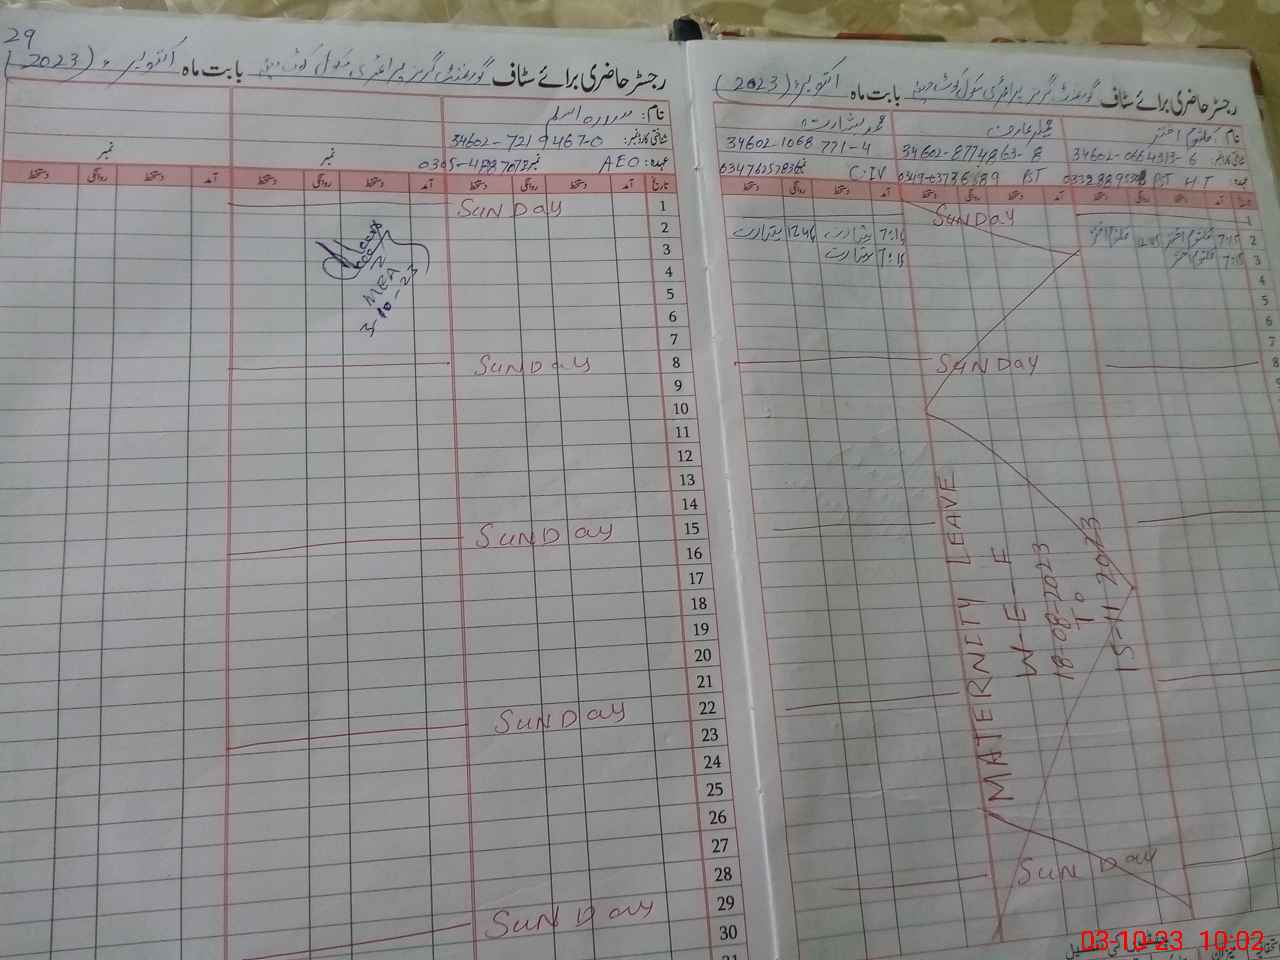 29
رجسٹر حاضری برائے سٹاف گورنمنٹ گرلز پرائمری سکول کوٹ بابت ماہ اکتوبر (2023)
نام: سدرہ اسلم
شناختی کارڈ نمبر: 34602-7219467-0
عہدہ: AEO نمبر نمبر
تاریخ آمد دستخط روانگی دستخط آمد دستخط روانگی دستخط آمد دستخط روانگی دستخط
1 SUNDay
2
3
MEA
3-10-23
4
5
6
7
8 SUNDay
9
10
11
12
13
14
15 SUNDay
16
17
18
19
20
21
22 SUNDay
23
24
25
26
27
28
29 SUNDay
30
31
رجسٹر حاضری برائے سٹاف گورنمنٹ گرلز پرائمری سکول کوٹ بابت ماہ اکتوبر (2023)
نام کلثوم اختر محمد بشارت
34602-0664313-6 34602-8774863-8 34602-1068771-4
PST HT PST C-IV
تاریخ آمد دستخط روانگی دستخط آمد دستخط روانگی دستخط آمد دستخط روانگی دستخط
1 SUNDAY
2 7:15 کلثوم اختر 12:45 کلثوم اختر 7:15 بشارت 12:45 بشارت
3 7:15 کلثوم اختر 7:15 بشارت
4
5
6
7
8 SUNDAY
9
MATERNITY LEAVE
W-E-F
18-08-2023
To
15-11-2023
SUNDay
03-10-23 10:02